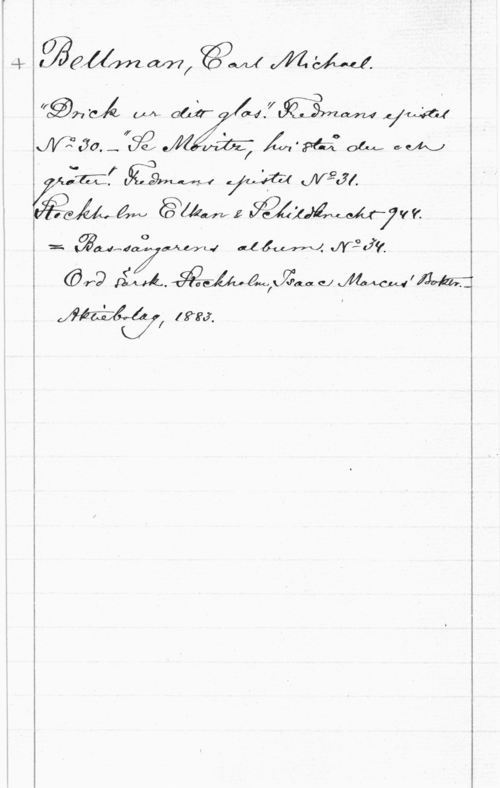 + Bellman, Carl Michael.
"Drick ur ditt glas." Fredmans epistel
Nº 30. _ "Se Movitz, hvi står du och
gråter! Fredmans epistel Nº 31.
Stockholm Elkan & Schildknecht 944.
= Bas-sångarens album. Nº 34.
Ord särsk. Stockholm, Isaac Marcus' Boktr.=
Aktiebolag, 1883.